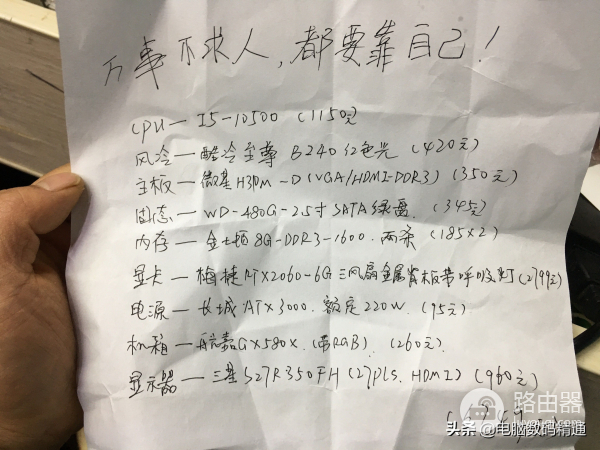 万事不求人，都要靠自己！
CPU—I5-10500（1150元）
风冷—酷冷至尊 B240 红色光（420元）
主板—微基H310M-D(VGA/HDMI-DDR3)（350元）
固态—WD-480G-2.5寸SATA绿盘（345元）
内存—金士顿8G-DDR3-1600.两条（185×2）
显卡—梅捷RTX2060-6G三风扇金属背板带呼吸灯（2799元）
电源—长城ATX3000.额定220W（95元）
机箱—航嘉GX580X.（带RGB）（260元）
显示器—三基S27R350FH(27pls.HDMI)（960元）
路由器
头条 @电脑数码精通